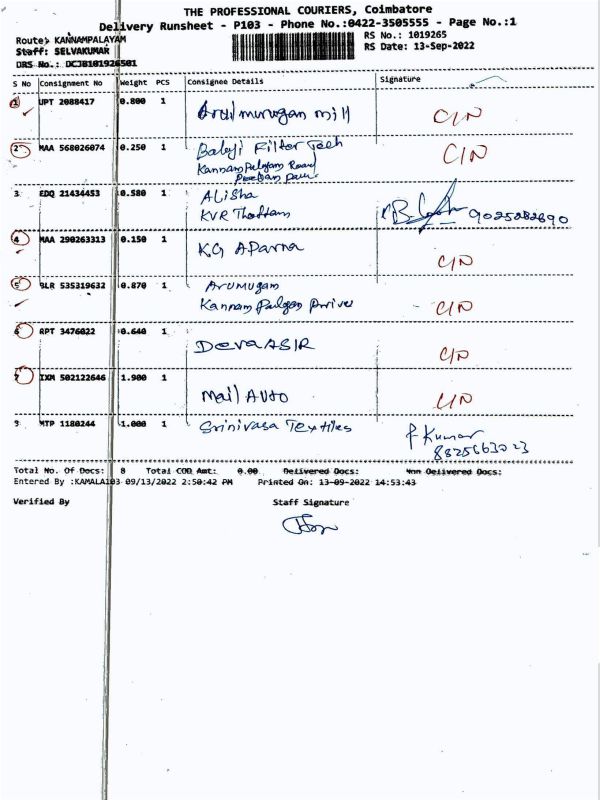 THE PROFESSIONAL COURIERS, Coimbatore
Delivery Runsheet - P103 - Phone No.:0422-3505555 - Page No.:1
Route: KANNAMPALAYAM
RS No.: 1019265
Staff: SELVAKUMAR
RS Date: 13-Sep-2022
DRS No.: DCJB101926501
S No Consignment No Weight PCS Consignee Details Signature
1 UPT 2088417 0.800 1 Arulmurugan mill C/N
2 MAA 568026074 0.250 1 Balaji Filter Tech C/N
Kannam Palayam Road
3 EDQ 21434453 0.580 1 Alisha
KVR Thottam 9025282690
4 MAA 290263313 0.150 1 KG Aparna C/N
5 BLR 535319632 0.870 1 Arumugam
Kannam C/N
6 RPT 3476022 0.640 1 Deva ASIR C/N
7 IXM 502122646 1.900 1 Mail Auto C/N
MTP 1180244 1.000 1 Srinivasa Textiles P Kumar
8825663023
Total No. Of Docs: 8 Total COD Amt: 0.00 Delivered Docs: Non Delivered Docs:
Entered By :KAMALA103 09/13/2022 2:50:42 PM Printed On: 13-09-2022 14:53:43
Verified By Staff Signature